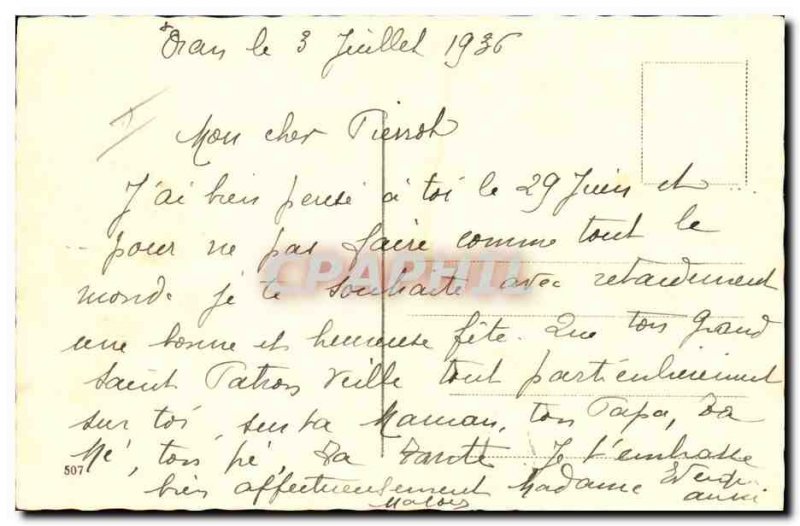 Oran le 3 Juillet 1936
Mon cher Pierrot
J'ai bien pensé à toi le 29 Juin et
pour ne pas faire comme tout le
monde je te souhaite avec retardement
une bonne et heureuse fête. Que ton Grand
Saint Patron veille tout particulièrement
sur toi, sur ta Maman, ton Papa, Ta
Mé, ton pé, Ta Tante. Je t'embrasse
bien affectueusement Madame
aussi
507
CPAPHIL